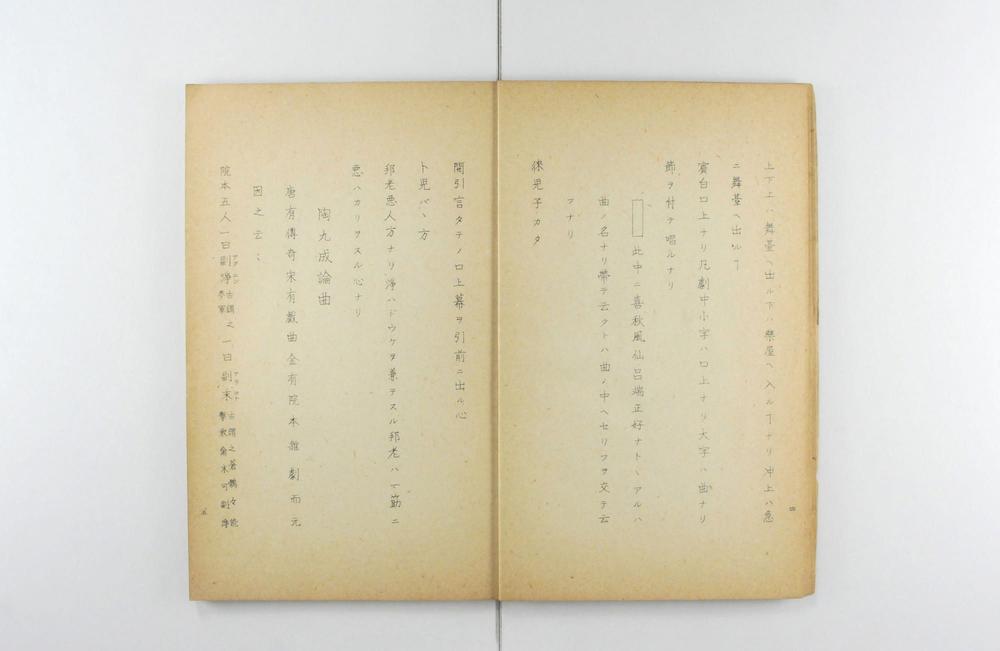 上下上ハ舞臺ヘ出ル下ハ樂屋ヘ入ル丁ナリ冲上ハ急
ニ舞臺ヘ出ル丁
賓白口上ナリ凡劇中小字ハ口上ナリ大字ハ曲ナリ
節ヲ付テ唱ルナリ
此中ニ喜秋風仙呂端正好ナト丶アルハ
曲ノ名ナリ帶テ云クトハ曲ノ中ヘセリフヲ交テ云
フナリ
徠児子カタ
四
開引言タテノ口上幕ヲ引前ニ出ル心
卜児バヽ方
邦老悪人方ナリ淨ハドウケヲ兼テスル邦老ハ一筋ニ
悪ハカリヲスル心ナリ
陶九成論曲
唐有傳奇宋有戯曲金有院本雜劇而元
因之云〻
院本五人一曰副淨古謂之參軍一曰副末古謂之蒼鶻々能擊禽末可副淨
五